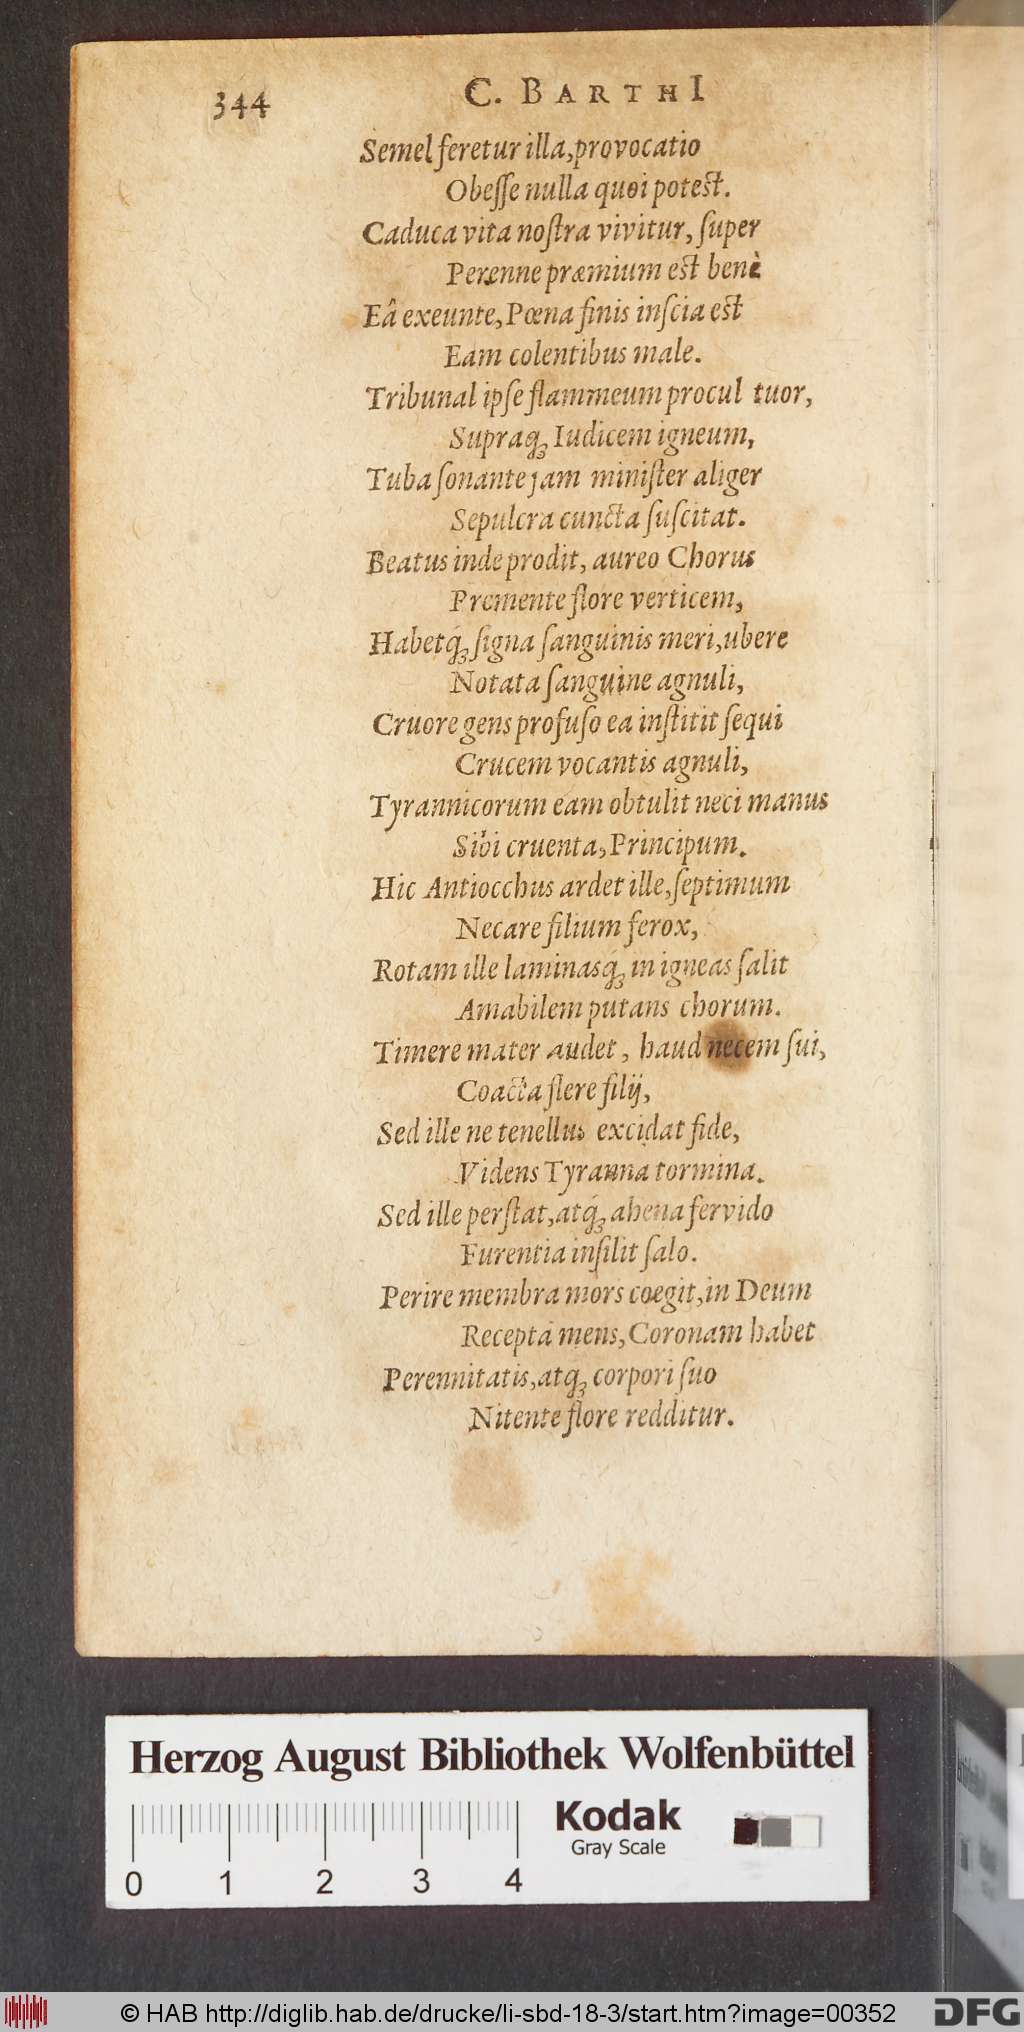 344 C. BARTHI
Semel feretur illa, provocatio
Obeſſe nulla quoi poteſt.
Caduca vita noſtra vivitur, ſuper
Perenne præmium eſt benè
Eâ exeunte, Pœna finis inſcia eſt
Eam colentibus male.
Tribunal ipſe flammeum procul tuor,
Supraq́; Iudicem igneum,
Tuba ſonante jam miniſter aliger
Sepulcra cuncta ſuſcitat.
Beatus inde prodit, aureo Chorus
Premente flore verticem,
Habetq́; ſigna ſanguinis meri, ubere
Notata ſanguine agnuli,
Cruore gens profuſo ea inſtitit ſequi
Crucem vocantis agnuli,
Tyrannicorum eam obtulit neci manus
Sibi cruenta, Principum.
Hic Antiocchus ardet ille, ſeptimum
Necare filium ferox,
Rotam ille laminasq́; in igneas ſalit
Amabilem putans chorum.
Timere mater audet, haud necem ſui,
Coacta flere filij,
Sed ille ne tenellus excidat fide,
Videns Tyranna tormina.
Sed ille perſtat, atq́; ahena fervido
Furentia inſilit ſalo.
Perire membra mors coegit, in Deum
Recepta mens, Coronam habet
Perennitatis, atq́; corpori ſuo
Nitente flore redditur.
Herzog August Bibliothek Wolfenbüttel
Kodak
Gray Scale
0 1 2 3 4
© HAB http://diglib.hab.de/drucke/li-sbd-18-3/start.htm?image=00352
DFG